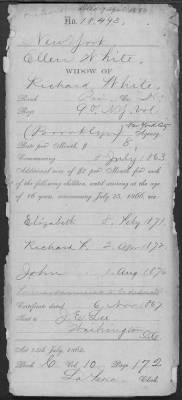 No. 10,493.
New York
Ellen White
WIDOW OF
Richard White.
Rank
Regt 90. N.Y. Vol.
(Brooklyn) New York City Agency
Rate per Month, $ 8,
Commencing July 1863
Additional sum of $2 per Month for each
of the following children, until arriving at the age
of 16 years, commencing July 25, 1866, viz:
Elizabeth 8. Feby 1871.
Richard P. 2. Apr 1872.
John 1. Aug 1876
Certificate dated 6 Nov. 1867
Sent to J. E. Lee
Washington
Act 14th July, 1862.
Book C Vol. 10. Page 172
Clerk.